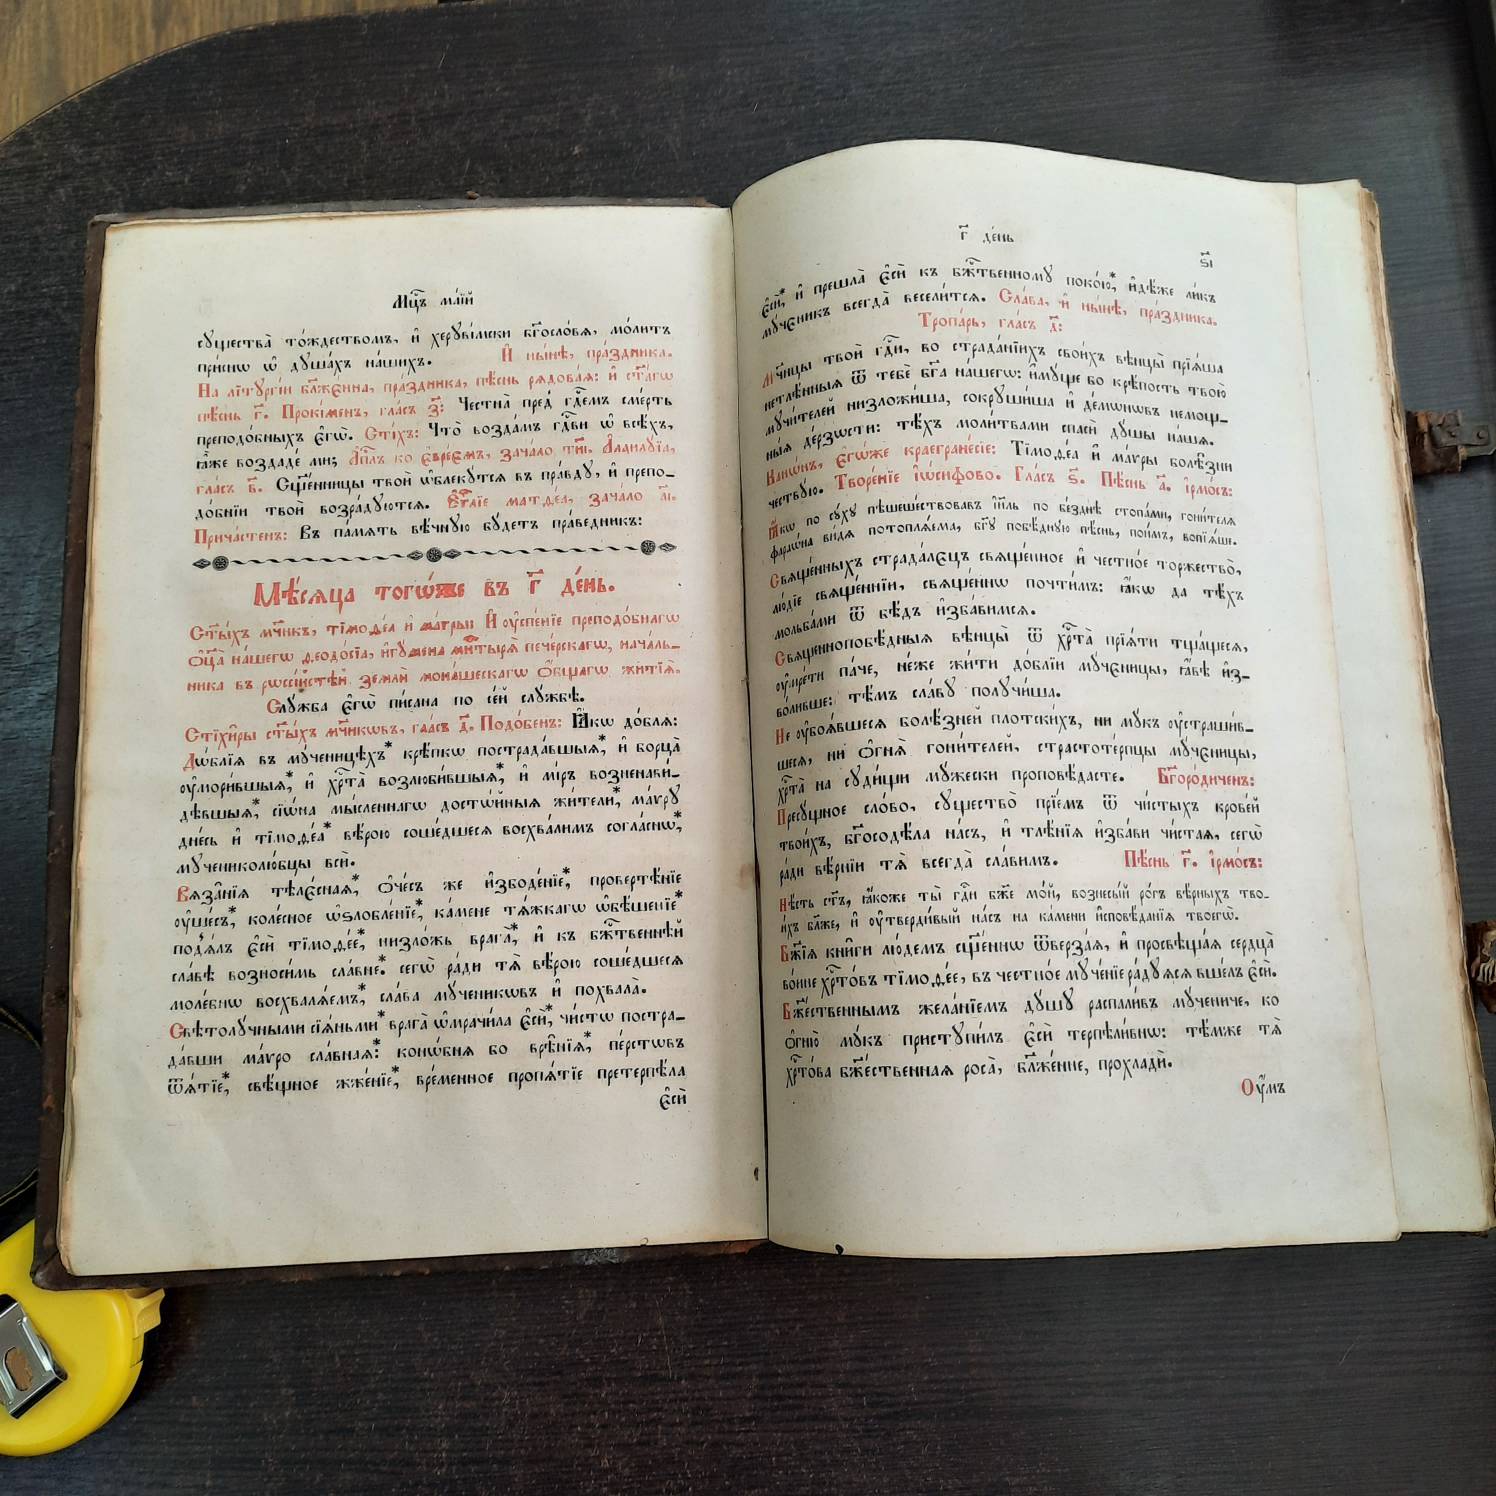 Мцⷭ҇ъ ма́їй
существа̀ то́ждествомъ, и҆ херꙋві́мски бг҃осло́вѧ, мо́литъ
при́снѡ ѡ҆ дꙋша́хъ на́шихъ. И҆ ны́нѣ, пра́здника.
На лїтꙋргі́и бл҃же́нна, пра́здника, пѣ́снь рѧдова́ѧ: и҆ ст҃а́гѡ
пѣ́снь г҃. Проки́менъ, гла́съ з҃: Честна̀ пред̾ гдⷭ҇емъ сме́рть
преподо́бныхъ є҆гѡ̀. Сті́хъ: Что̀ возда́мъ гдⷭ҇ви ѡ҆ всѣ́хъ,
ꙗ҆́же воздаде́ ми; А҆пⷭ҇лъ ко є҆вре́ємъ, зача́ло тл҃і. А҆ллилꙋ́їа,
гла́съ в҃. Сщ҃е́нницы твоѝ ѡ҆блекꙋ́тсѧ въ пра́вдꙋ, и҆ препо-
до́бнїи твоѝ возра́дꙋютсѧ. Є҆ѵⷢ҇лїе матѳе́а, зача́ло л҃і.
Прича́стенъ: Въ па́мѧть вѣ́чнꙋю бꙋ́детъ пра́ведникъ:
Мѣ́сѧца тогѡ́же въ г҃ де́нь.
Ст҃ы́хъ мч҃нкъ, тїмоѳе́а и҆ ма́ѵры И҆ ᲂу҆спе́нїе преподо́бнагѡ
ѻ҆ц҃а̀ на́шегѡ ѳеодо́сїа, и҆гꙋ́мена мⷭ҇тырѧ̀ пече́рскагѡ, нача́ль-
ника въ рѡссі́йстѣй землѝ мона́шескагѡ ѻ҆́бщагѡ житїѧ̀.
Слꙋ́жба є҆гѡ̀ пи́сана по се́й слꙋ́жбѣ.
Стїхи̑ры ст҃ы́хъ мч҃никѡвъ, гла́съ д҃. Подо́бенъ: Ꙗ҆́кѡ до́блѧ:
Дѡ́блїѧ въ мꙋ́ченицѣхъ* крѣ́пкѡ пострада́вшыѧ*, и҆ борца̀
ᲂу҆мори́вшыѧ*, и҆ хрⷭ҇та̀ возлюби́вшыѧ*, и҆ мі́ръ возненави́-
дѣвшыѧ*, сїѡ́на мы́сленнагѡ достѡ́йныѧ жи́тели*, ма́ѵрꙋ
дне́сь и҆ тїмоѳе́а* вѣ́рою соше́дшесѧ восхва́лимъ согла́снѡ*,
мꙋчениколю́бцы всѝ.
Вѧза̑нїѧ тѣлє́снаѧ*, ѻ҆че́съ же и҆збоде́нїе*, проверте́нїе
ᲂу҆ше́съ*, коле́сное ѡ҆ѕлобле́нїе*, ка́мене тѧ́жкагѡ ѡ҆бѣ́шенїе*
под̾ѧ́лъ є҆сѝ тїмоѳе́е*, низло́жь врага̀*, и҆ къ бжⷭ҇твеннѣй
сла́вѣ возноси́мь сла́вне*. сегѡ̀ ра́ди тѧ̀ вѣ́рою соше́дшесѧ
моле́бнѡ восхвалѧ́емъ*, сла́ва мꙋ́ченикѡвъ и҆ похвала̀.
Свѣтолꙋ́чными сїѧ́ньми* врага̀ ѡ҆мрачи́ла є҆сѝ*, чи́стѡ постра-
да́вши ма́ѵро сла́внаѧ*: конѡ́бнѧ бо врє́нїѧ*, пе́рстѡвъ
ѿѧ́тїе*, свѣ́щное жже́нїе*, вре́менное пропѧ́тїе претерпѣ́ла
є҆сѝ
г҃ де́нь
ѕ҃і
є҆сѝ*, и҆ прешла̀ є҆сѝ къ бжⷭ҇твенномꙋ поко́ю*, и҆дѣ́же ли́къ
мꙋ́ченикъ всегда̀ весели́тсѧ. Сла́ва, и҆ ны́нѣ, пра́здника.
Тропа́рь, гла́съ д҃:
Мч҃ницы твоѝ гдⷭ҇и, во страда́нїихъ свои́хъ вѣнцы̀ прїѧ́ша
нетлѣ́нныѧ ѿ тебє̀ бг҃а на́шегѡ: и҆мꙋ́ще бо крѣ́пость твою̀
мꙋчи́телей низложи́ша, сокрꙋши́ша и҆ де́мѡнѡвъ немощ-
ны́ѧ де́рзости: тѣ́хъ моли́твами спасѝ дꙋ́шы на́шѧ.
Канѡ́нъ, є҆гѡ́же краегране́сїе: Тїмоѳе́а и҆ ма́ѵры болѣ̑зни
че́ствꙋю. Творе́нїе і҆ѡ́сифово. Гла́съ ѕ҃. Пѣ́снь а҃. І҆рмо́съ:
Ꙗ҆́кѡ по сꙋ́хꙋ пѣшеше́ствовавъ і҆и҃ль по бе́зднѣ стопа́ми, гони́телѧ
фараѡ́на ви́дѧ потоплѧ́ема, бг҃ꙋ побѣ́днꙋю пѣ́снь, пои́мъ, вопїѧ́ше.
Свѧще́нныхъ страда́лєцъ свѧще́нное и҆ честно́е торжество̀,
лю́дїе свѧще́ннїи, свѧще́ннѡ почти́мъ: ꙗ҆́кѡ да тѣ́хъ
мольба́ми ѿ бѣ́дъ и҆зба́вимсѧ.
Свѧщеннопобѣ́дныѧ вѣнцы̀ ѿ хрⷭ҇та̀ прїѧ́ти тща́щесѧ,
ᲂу҆мре́ти па́че, не́же жи́ти до́блїи мꙋ́чєницы, ꙗ҆́вѣ и҆з-
во́ливше: тѣ́мъ сла́вꙋ полꙋчи́ша.
Не ᲂу҆боѧ́вшесѧ болѣ́зней плотски́хъ, ни мꙋ́къ ᲂу҆страши́в-
шесѧ, ни ѻ҆гнѧ̀ гони́телей, страстоте́рпцы мꙋ́чєницы,
хрⷭ҇та̀ на сꙋди́щи мꙋ́жески проповѣ́дасте. Бг҃оро́диченъ:
Пресꙋ́щное сло́во, сꙋщество̀ прїе́мъ ѿ чи́стыхъ крове́й
твои́хъ, бг҃осодѣ́ла на́съ, и҆ тлѣ́нїѧ и҆зба́ви чи́стаѧ, сегѡ̀
ра́ди вѣ́рнїи тѧ̀ всегда̀ сла́вимъ. Пѣ́снь г҃. І҆рмо́съ:
Нѣ́сть ст҃ъ, ꙗ҆́коже ты̀ гдⷭ҇и бж҃е мо́й, вознесы́й ро́гъ вѣ́рныхъ тво-
и́хъ бл҃же, и҆ ᲂу҆тверди́вый на́съ на ка́мени и҆сповѣ́данїѧ твоегѡ̀.
Бж҃їѧ кни̑ги лю́демъ сщ҃е́ннѡ ѿверза́ѧ, и҆ просвѣща́ѧ сердца̀
во́ине хрⷭ҇то́въ тїмоѳе́е, въ честно́е мꙋче́нїе ра́дꙋѧсѧ вше́лъ є҆сѝ.
Бж҃е́ственнымъ жела́нїемъ дꙋ́шꙋ распали́въ мꙋ́чениче, ко
ѻ҆гню̀ мꙋ́къ пристꙋпи́лъ є҆сѝ терпѣли́внѡ: тѣ́мже тѧ̀
хрⷭ҇то́ва бж҃е́ственнаѧ роса̀, бл҃же́нне, прохладѝ.
Оу҆́мъ